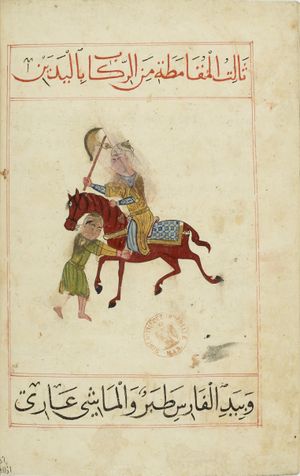 ثالث المقامطة من الركاب باليدين
وبيد الفارس طبر والماشي عاري